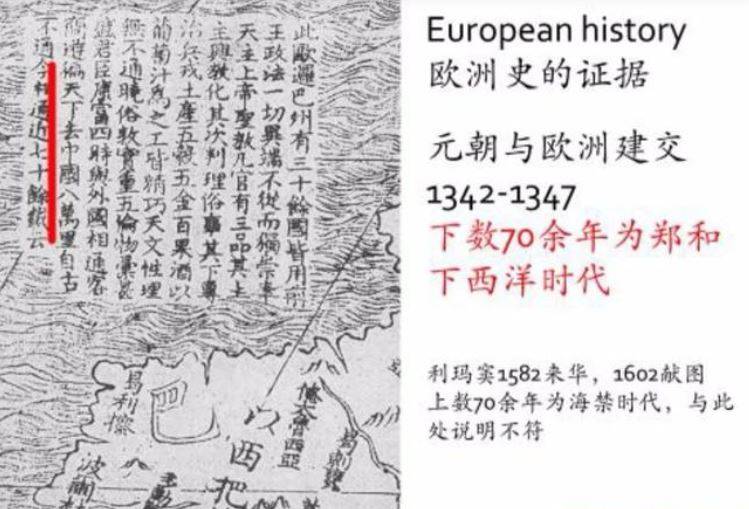 此歐邏巴州有三十餘國皆用前
王政法一切異端不從而獨崇奉
天主上帝聖教凡官有三品其上
主興教化其次判理俗事其下專
治兵戎土產五穀五金百果酒以
葡萄汁為之工皆精巧天文性理
無不通曉俗敦實重五倫物彙甚
盛君臣康富四時與外國相通客
商遊徧天下去中國八萬里自古
不通今相通近七十餘載云
巴
以西把
European history
欧洲史的证据
元朝与欧洲建交
1342-1347
下数70余年为郑和
下西洋时代
利玛窦1582来华，1602献图
上数70余年为海禁时代，与此
处说明不符